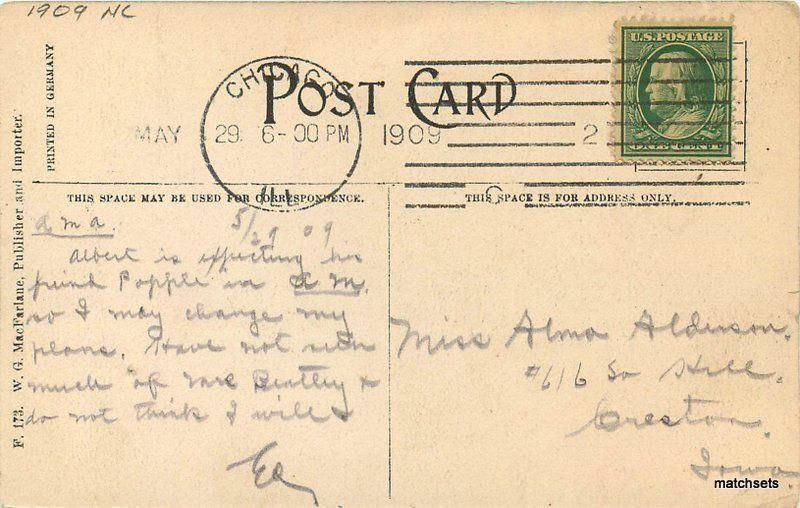 1909 NC
POST CARD
CHICAGO
MAY 29. 6-00 PM 1909 2
ILL
U.S. POSTAGE
ONE CENT
PRINTED IN GERMANY
F. 173. W. G. MacFarlane, Publisher and Importer.
THIS SPACE MAY BE USED FOR CORRESPONDENCE.
THIS SPACE IS FOR ADDRESS ONLY.
5/29 09
Albert is expecting his
friend Popple in a.m.
so I may change my
plans. Have not seen
much of Beatley &
do not think I will
Miss Alma Alderson.
#616 So Hill.
Creston
Iowa
matchsets